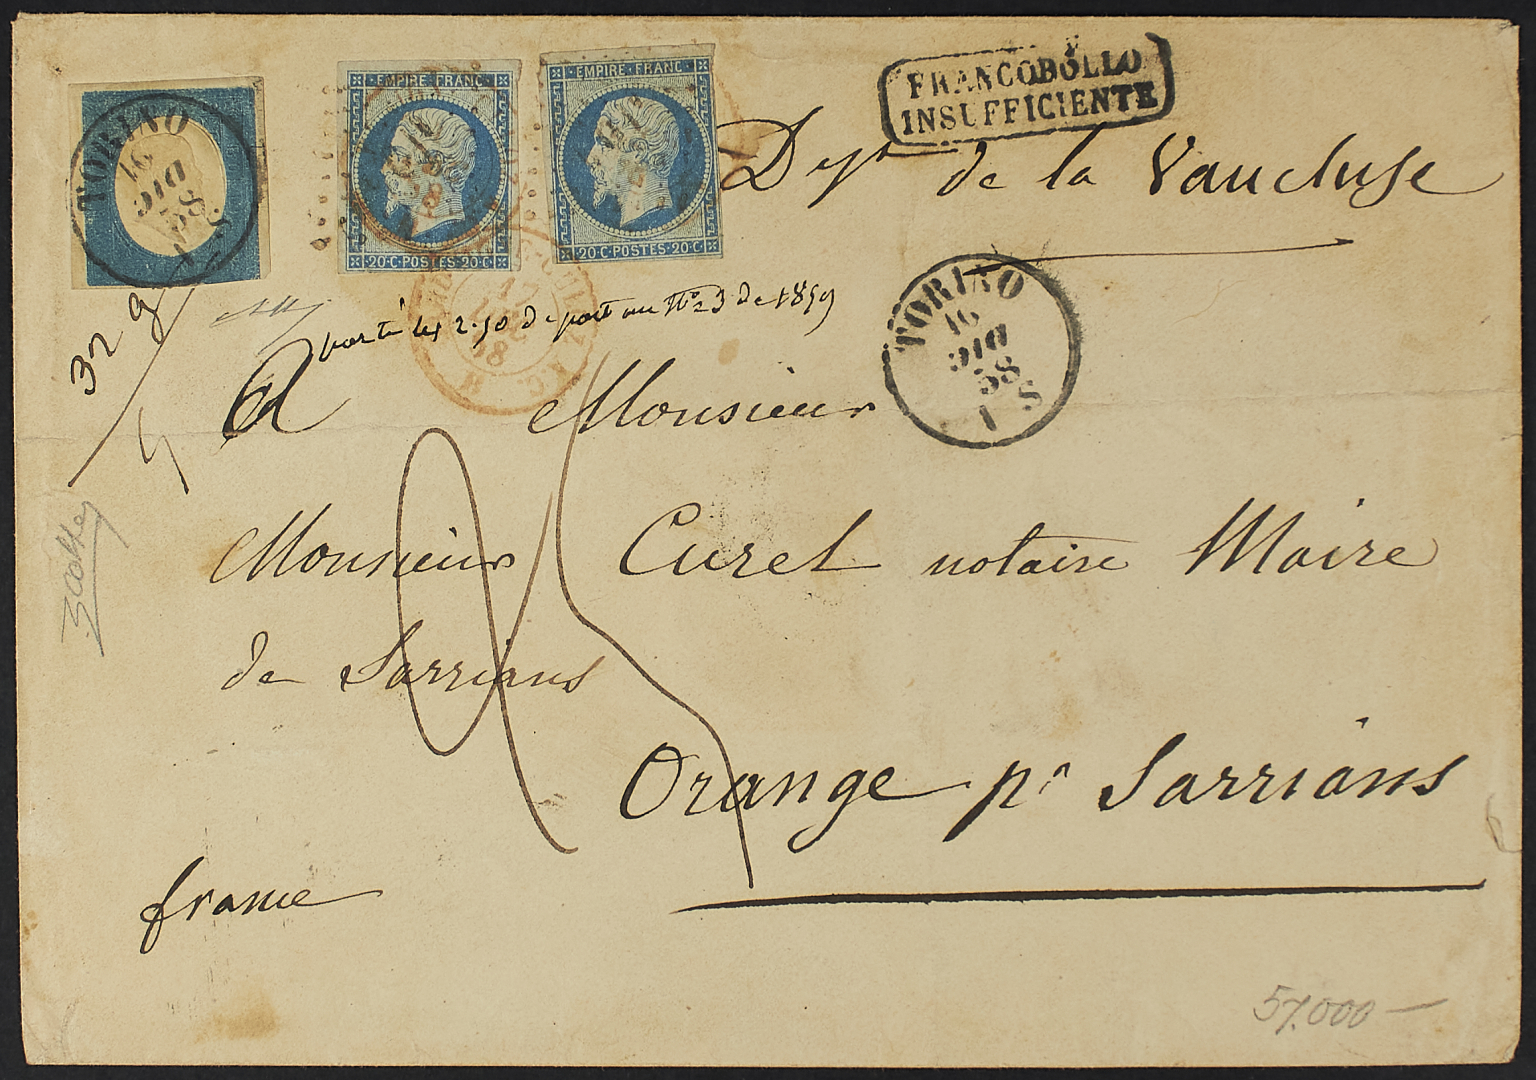 FRANCOBOLLO
INSUFFICIENTE
TORINO
16
DIC
58
1 S
EMPIRE FRANC
20·C·POSTES·20·C
EMPIRE FRANC
20·C·POSTES·20·C
Dept de la Vaucluse
TORINO
16
DIC
58
1 S
32 g
5
porté les 2.50 de port au No 23 de 1859
A Monsieur
25
Monsieur Curel notaire Maire
de Sarrians
Orange pr Sarrians
france
57.000 —